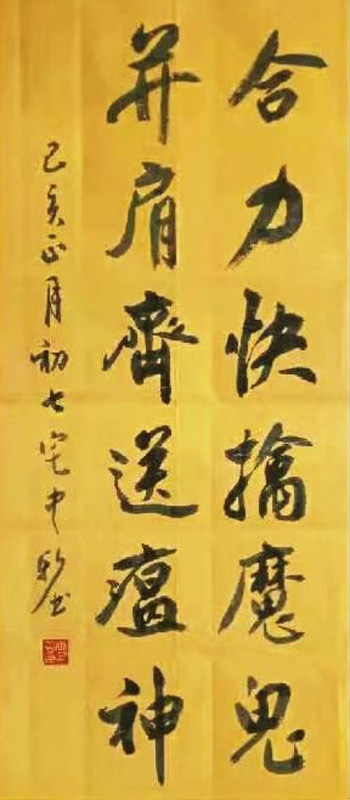 合力快擒魔鬼
并肩齊送瘟神
己亥正月初七宅中